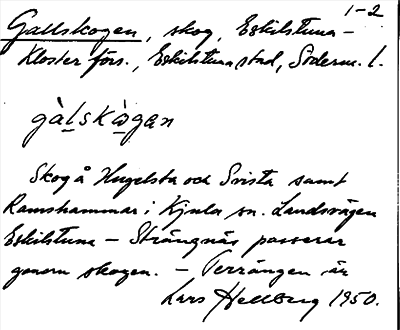 1-2
Gallskogen, skog, Eskilstuna-
Kloster förs., Eskilstuna stad, Söderm. l.
gàlskògen
Skog å Hugelsta och Svista samt
Ramshammar i Kjula sn. Landsvägen
Eskilstuna - Strängnäs passerar
genom skogen. - Terrängen är
Lars Hellberg 1950.